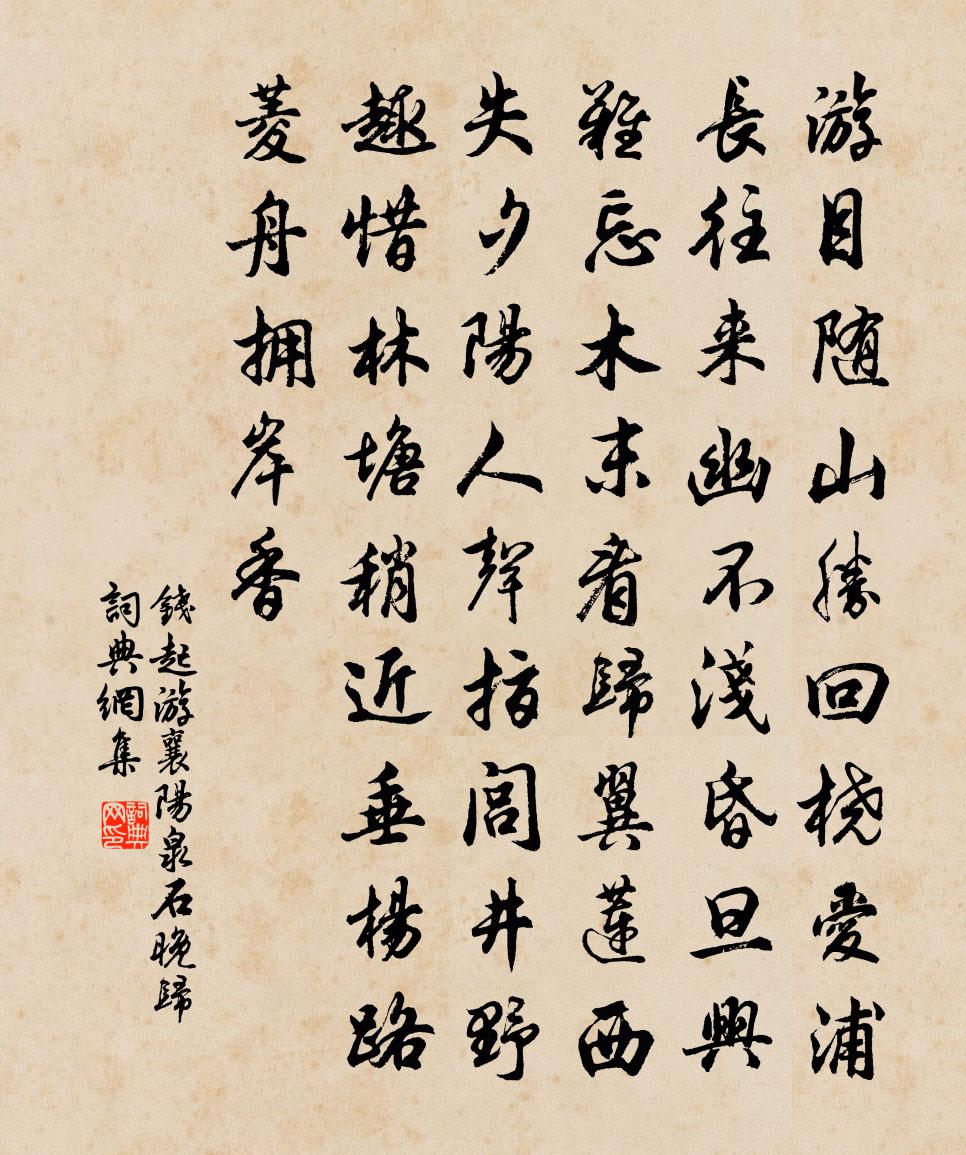 游目随山勝回橈愛浦
長往来幽不淺昏旦興
難忘木末看歸翼蓮西
失夕陽人聲指閭井野
趣惜林塘稍近垂楊路
菱舟拥岸香
錢起游襄陽泉石晚歸
詞典網集
詞典网印